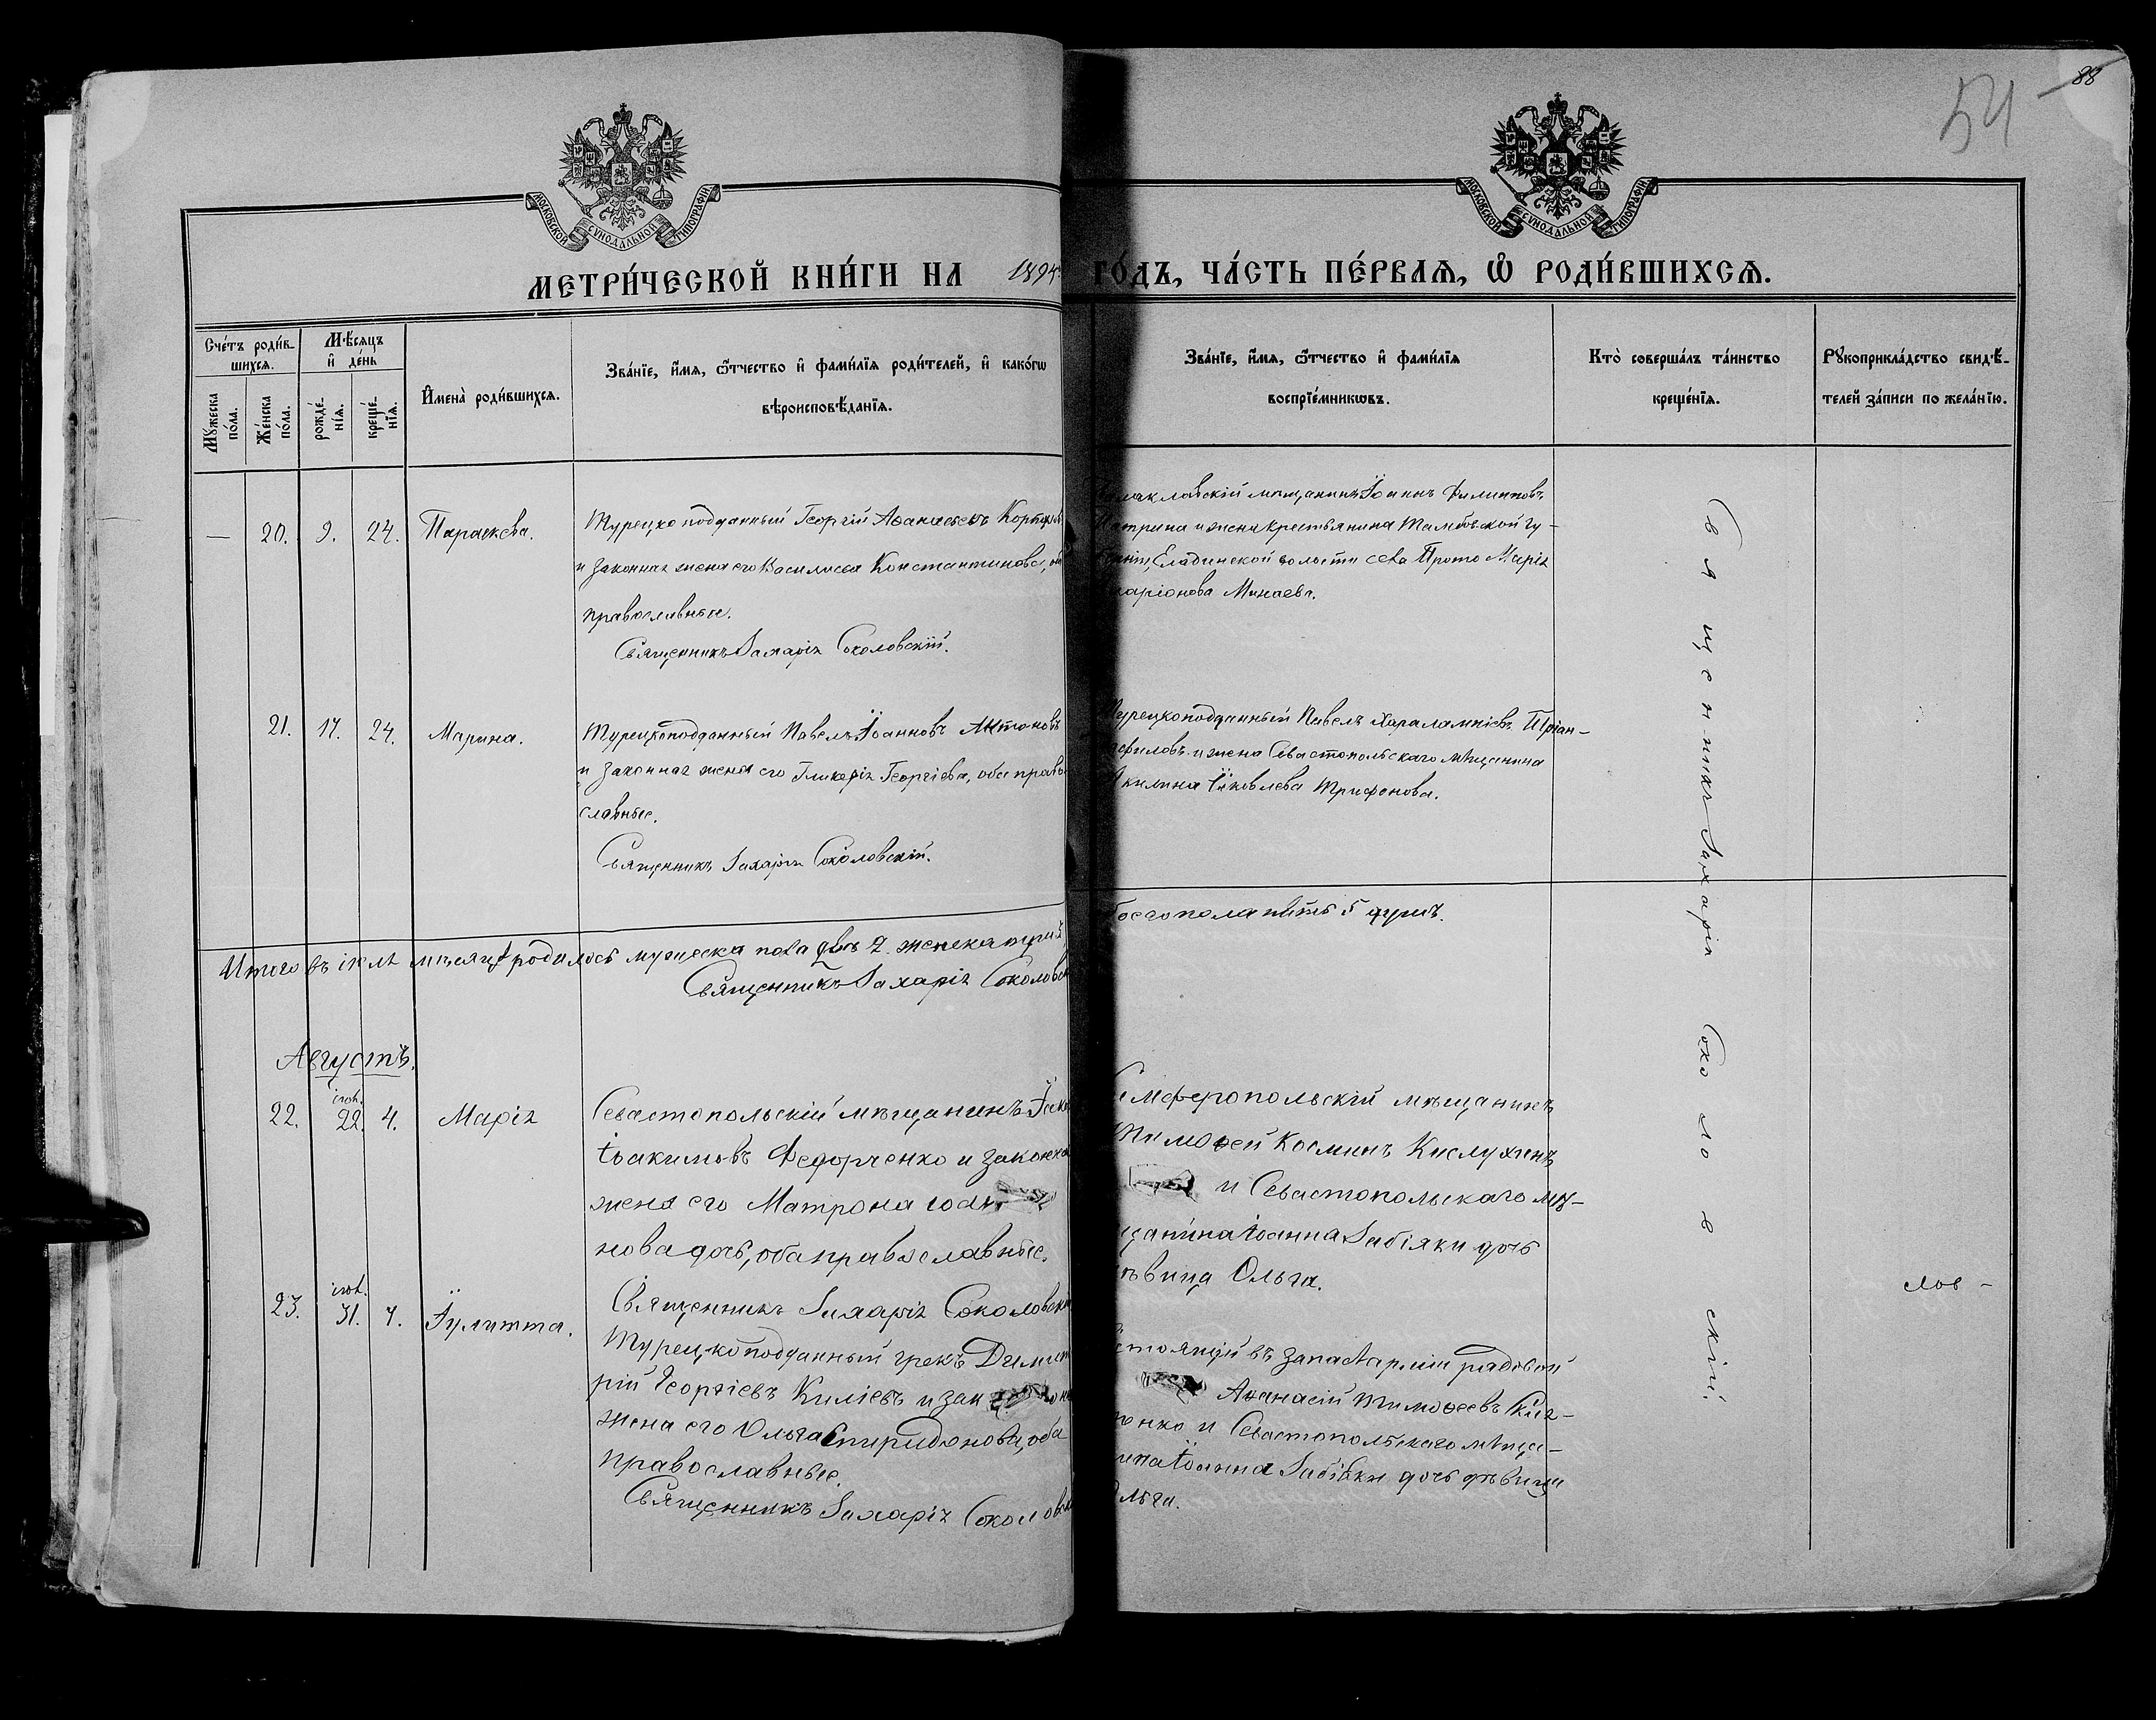 88
54
МОСКОВСКОЙ СУНОДАЛЬНОЙ ТИПОГРАФІИ
МОСКОВСКОЙ СУНОДАЛЬНОЙ ТИПОГРАФІИ
МЕТРИ́ЧЕСКОЙ КНИ́ГИ НА 1894 ГО́ДЪ, ЧА́СТЬ ПЕ́РВАѦ, Ѡ҆ РОДИ́ВШИХСѦ.
Сче́тъ роди́в-
шихсѧ.
Мꙋ́жеска
по́ла.
Же́нска
по́ла.
Мѣ́сѧцъ
и҆ де́нь
рожде́-
нїѧ.
креще́-
нїѧ.
И҆мена̀ роди́вшихсѧ.
Зва́нїе, и҆́мѧ, ѻ҆́тчество и҆ фами́лїѧ роди́телей, и҆ како́гѡ
вѣроисповѣ́данїѧ.
Зва́нїе, и҆́мѧ, ѻ҆́тчество и҆ фами́лїѧ
воспрїе́мникѡвъ.
Кто̀ соверша́лъ та́инство
креще́нїѧ.
Рꙋкоприкла́дство свидѣ́-
телей за́писи по жела́нїю.
— 20. 9. 24. Параскева.
Турецко подданный Георгій Аѳанасьевъ
и законная жена его Василиса Константинова,
православные.
Священникъ Захарія Соколовскій.
мѣщанинъ Іоаннъ Филипповъ
и жена крестьянина Тамбовской гу-
волости села Марія
Минаева.
21. 17. 24. Марина.
Турецкоподданный Павелъ Іоанновъ Антоновъ
и законная жена его Гликерія Георгіева, оба право
славные.
Священникъ Захарія Соколовскій.
Турецкоподданный Павелъ Харалампіевъ
и жена Севастопольскаго мѣщанина
Акилина Яковлева Трифонова.
Итого въ іюлѣ мѣсяцѣ родилось мужеска пола два 2. женска три 3,
Священникъ Захарія Соколовск
обоего пола пять 5 душъ.
Августъ.
22. іюл. 22. 4. Марія
Севастопольскій мѣщанинъ
Іоакимовъ Федорченко и законная
жена его Матрона Іоан
нова дочь, оба православные.
Священникъ Захарія Соколовск
Симферопольскій мѣщанинъ
Тимоѳей Косминъ Кислухинъ
и Севастопольскаго мѣ-
щанина Іоанна Забіяки дочь
дѣвица Ольга.
23. іюл. 31. 4. Іулитта.
Турецкоподданный грекъ Димит
рій Георгіевъ Киліевъ и зак
жена его Ольга Спиридонова, оба
православные.
Священникъ Захарія Соколовск
Состоящій въ запасѣ арміи рядовой
Аѳанасій Тимоѳеевъ
и Севастопольскаго мѣща-
нина Іоанна Забіяки дочь дѣвица
Ольга.
Священникъ Захарія Соколовскій.